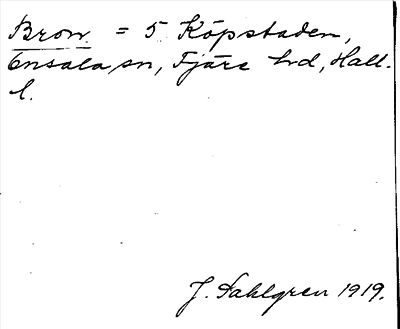 Bron. = 5 Köpstaden,
Onsala sn, Fjäre hd, Hall.
l.
J. Sahlgren 1919.